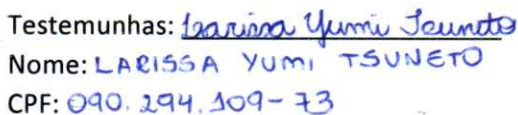 Testemunhas: Larissa Yumi Tsuneto
Nome: LARISSA YUMI TSUNETO
CPF: 090.294.109-73